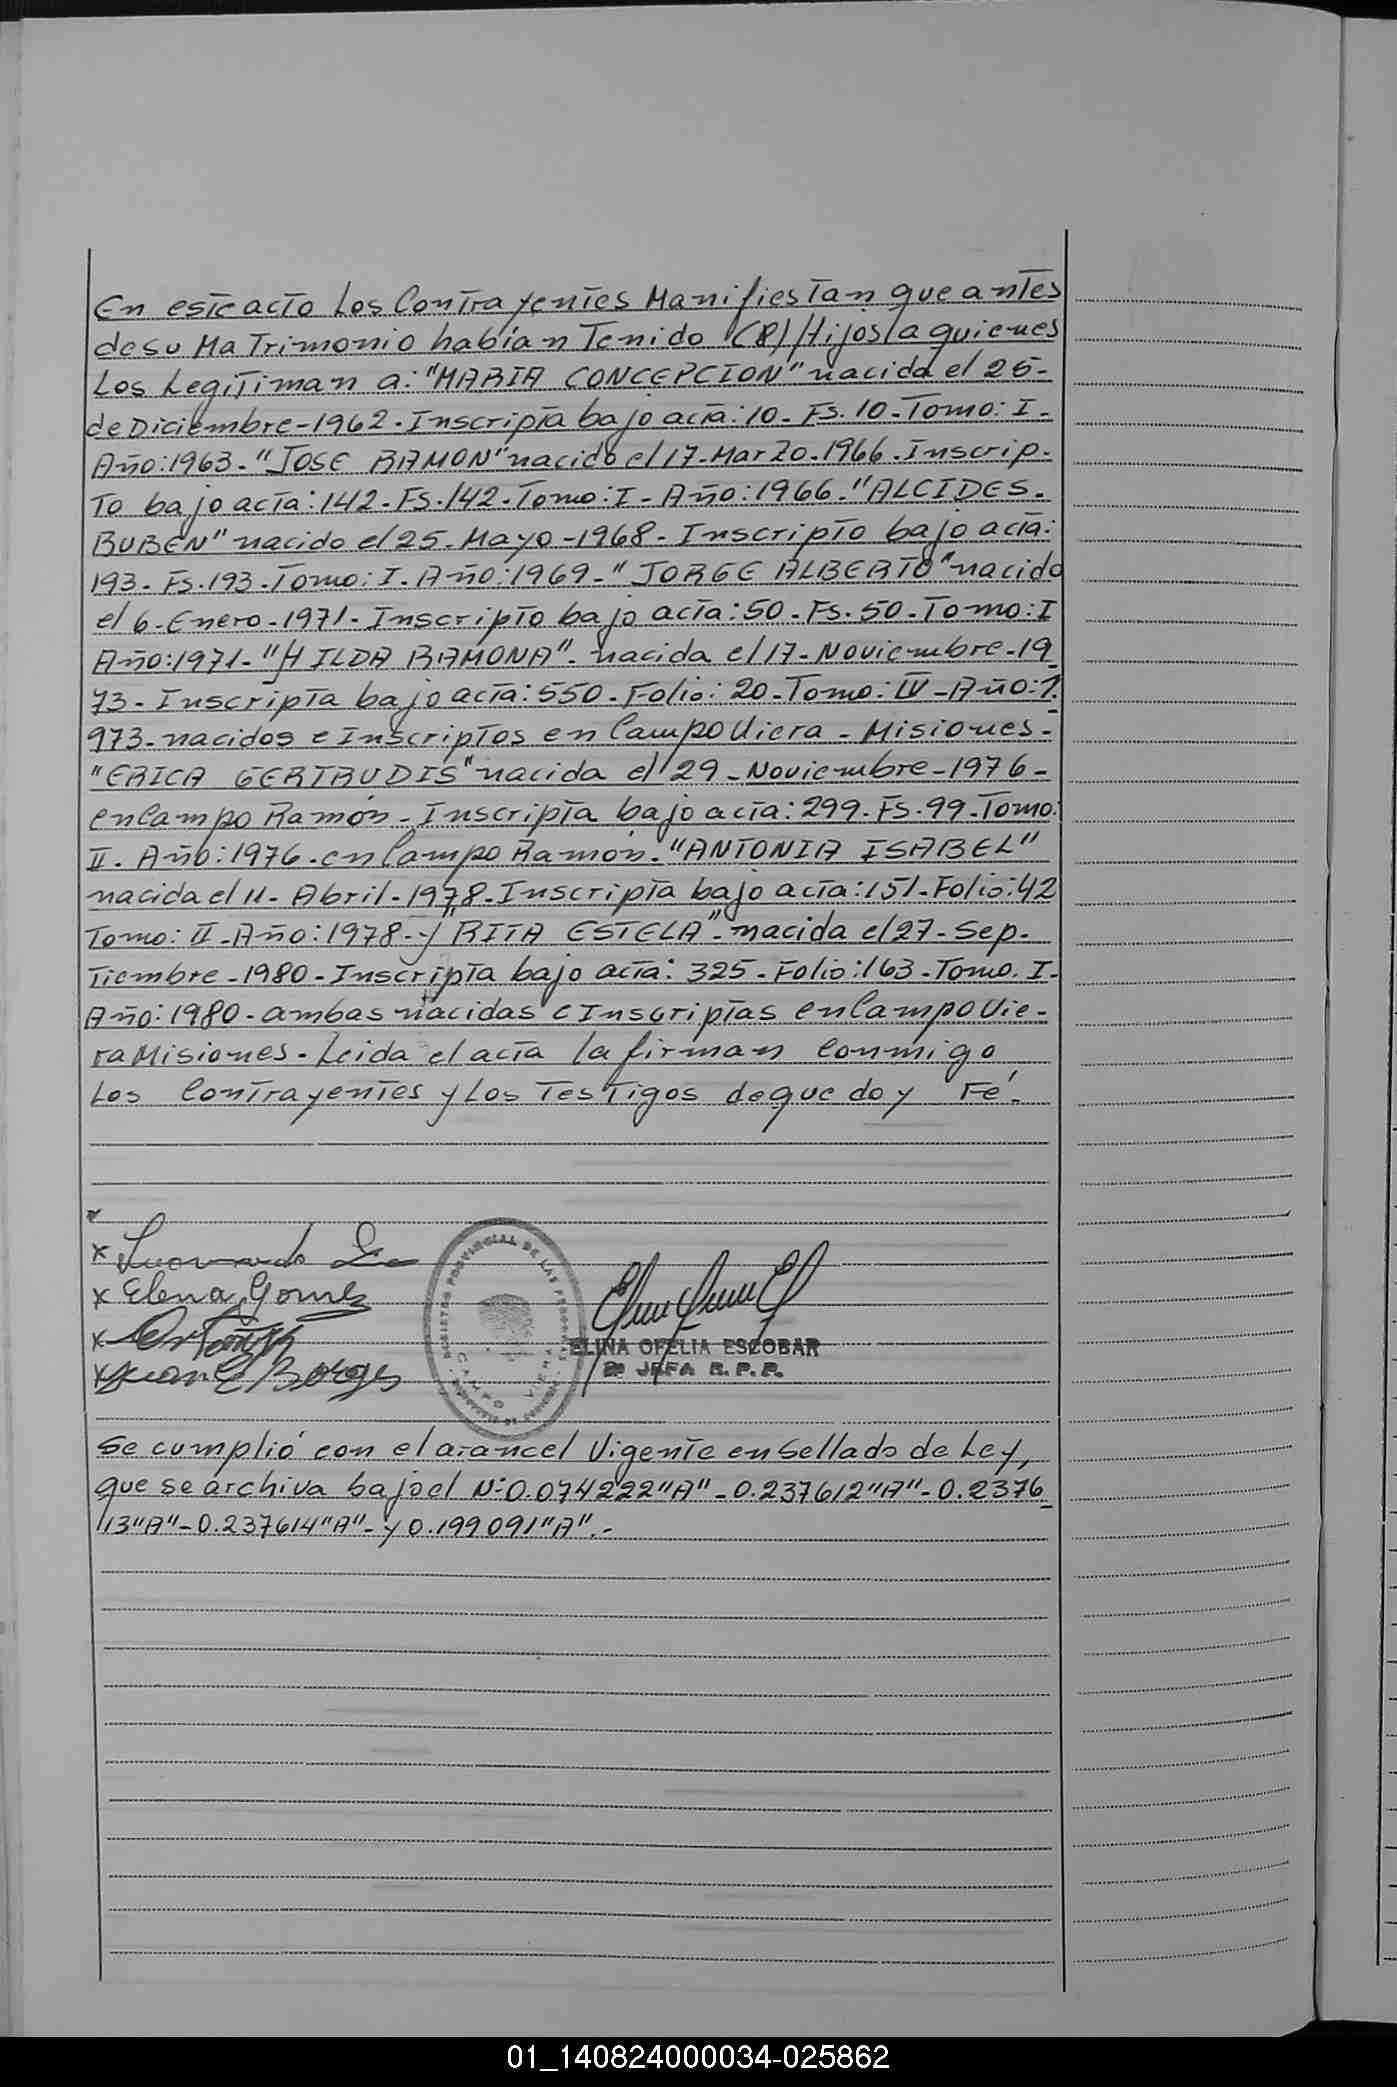 En este acto Los Contrayentes Manifiestan que antes
de su Matrimonio habían Tenido (8) Hijos a quienes
Los Legitiman a: "MARIA CONCEPCION" nacida el 25-
de Diciembre-1962. Inscripta bajo acta: 10- Fs. 10-Tomo: I-
Año: 1963- "JOSE RAMON" nacido el 17-Marzo-1966. Inscrip-
To bajo acta: 142- Fs. 142-Tomo: I- Año: 1966- "ALCIDES-
RUBEN" nacido el 25-Mayo-1968- Inscripto bajo acta:
193- Fs. 193-Tomo: I- Año: 1969- "JORGE ALBERTO" nacido
el 6-Enero-1971- Inscripto bajo acta: 50- Fs. 50-Tomo: I
Año: 1971- "HILDA RAMONA"- nacida el 17-Noviembre-19
73- Inscripta bajo acta: 550- Folio: 20-Tomo: IV-Año: 1.
973- nacidos e Inscriptos en Campo Viera - Misiones-
"ERICA GERTRUDIS" nacida el 29-Noviembre-1976-
en Campo Ramón- Inscripta bajo acta: 299- Fs. 99-Tomo:
II- Año: 1976- en Campo Ramón- "ANTONIA ISABEL"
nacida el 11- Abril-1978- Inscripta bajo acta: 151- Folio: 42
Tomo: II-Año: 1978- y "RITA ESTELA"- nacida el 27-Sep-
Tiembre-1980- Inscripta bajo acta: 325- Folio: 163-Tomo. I-
Año: 1980- ambas nacidas e Inscriptas en Campo Vie-
ra Misiones- Leida el acta la firman Conmigo
Los Contrayentes y Los Testigos de que doy Fé-
x
x Elena Gomez
x
x Juan E Borges
REGISTRO PROVINCIAL DE LAS PERSONAS
CAMPO VIERA
ELINA OFELIA ESCOBAR
JEFA R. P. P.
Se cumplió con el arancel Vigente en Sellado de Ley,
que se archiva bajo el N: 0.074222"A"-0.237612"A"-0.2376
13"A"-0.237614"A"- y 0.199091"A".-
01_140824000034-025862